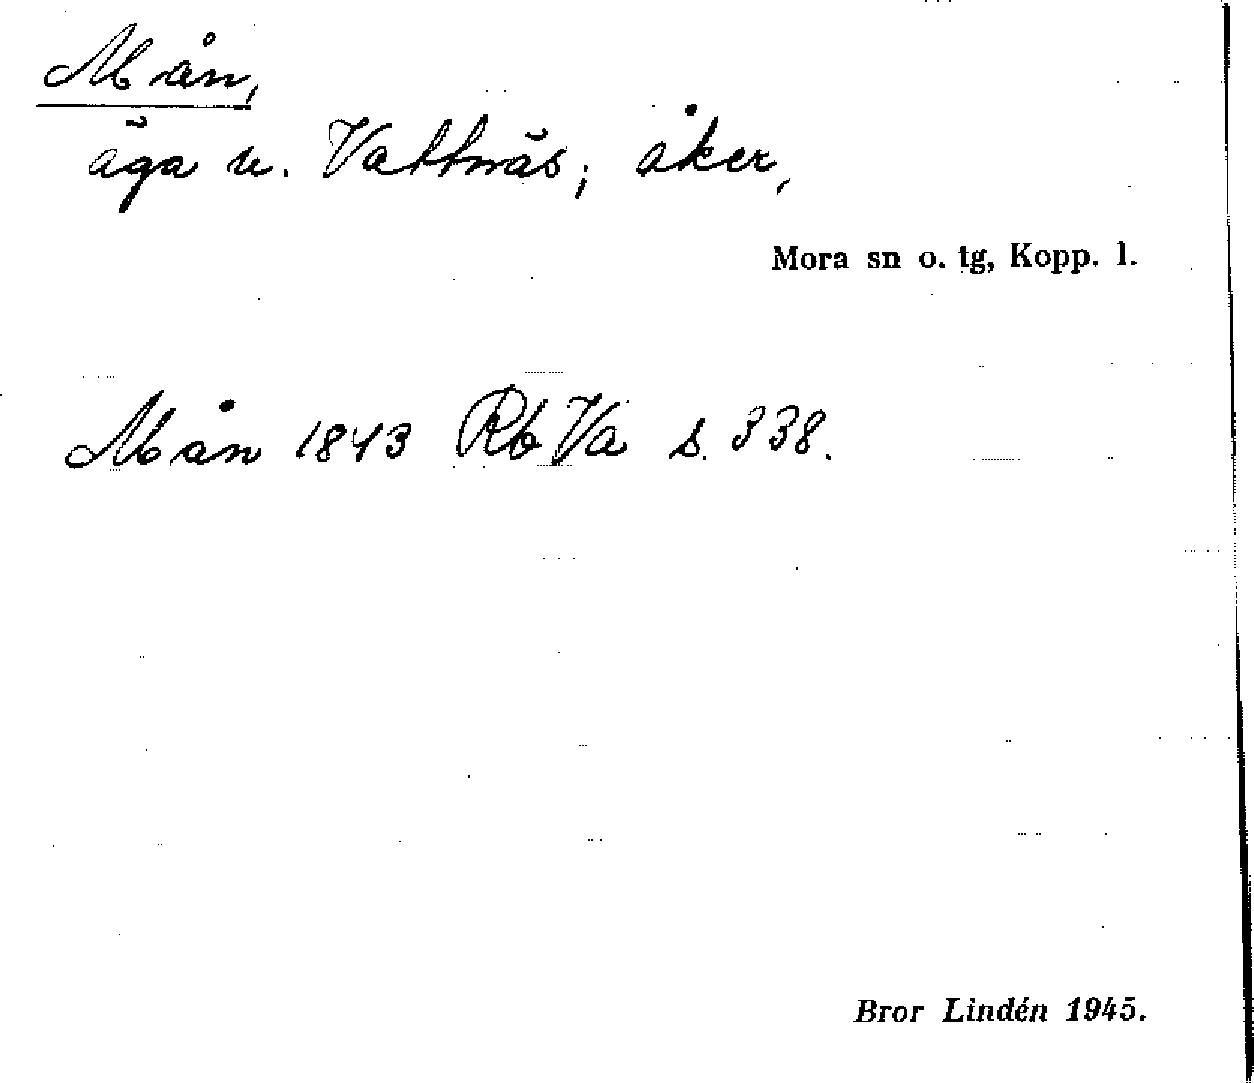 Mån,
äga u. Vattnäs; åker,
Mora sn o. tg, Kopp. l.
Mån 1843 Rb Va s. 338.
Bror Lindén 1945.